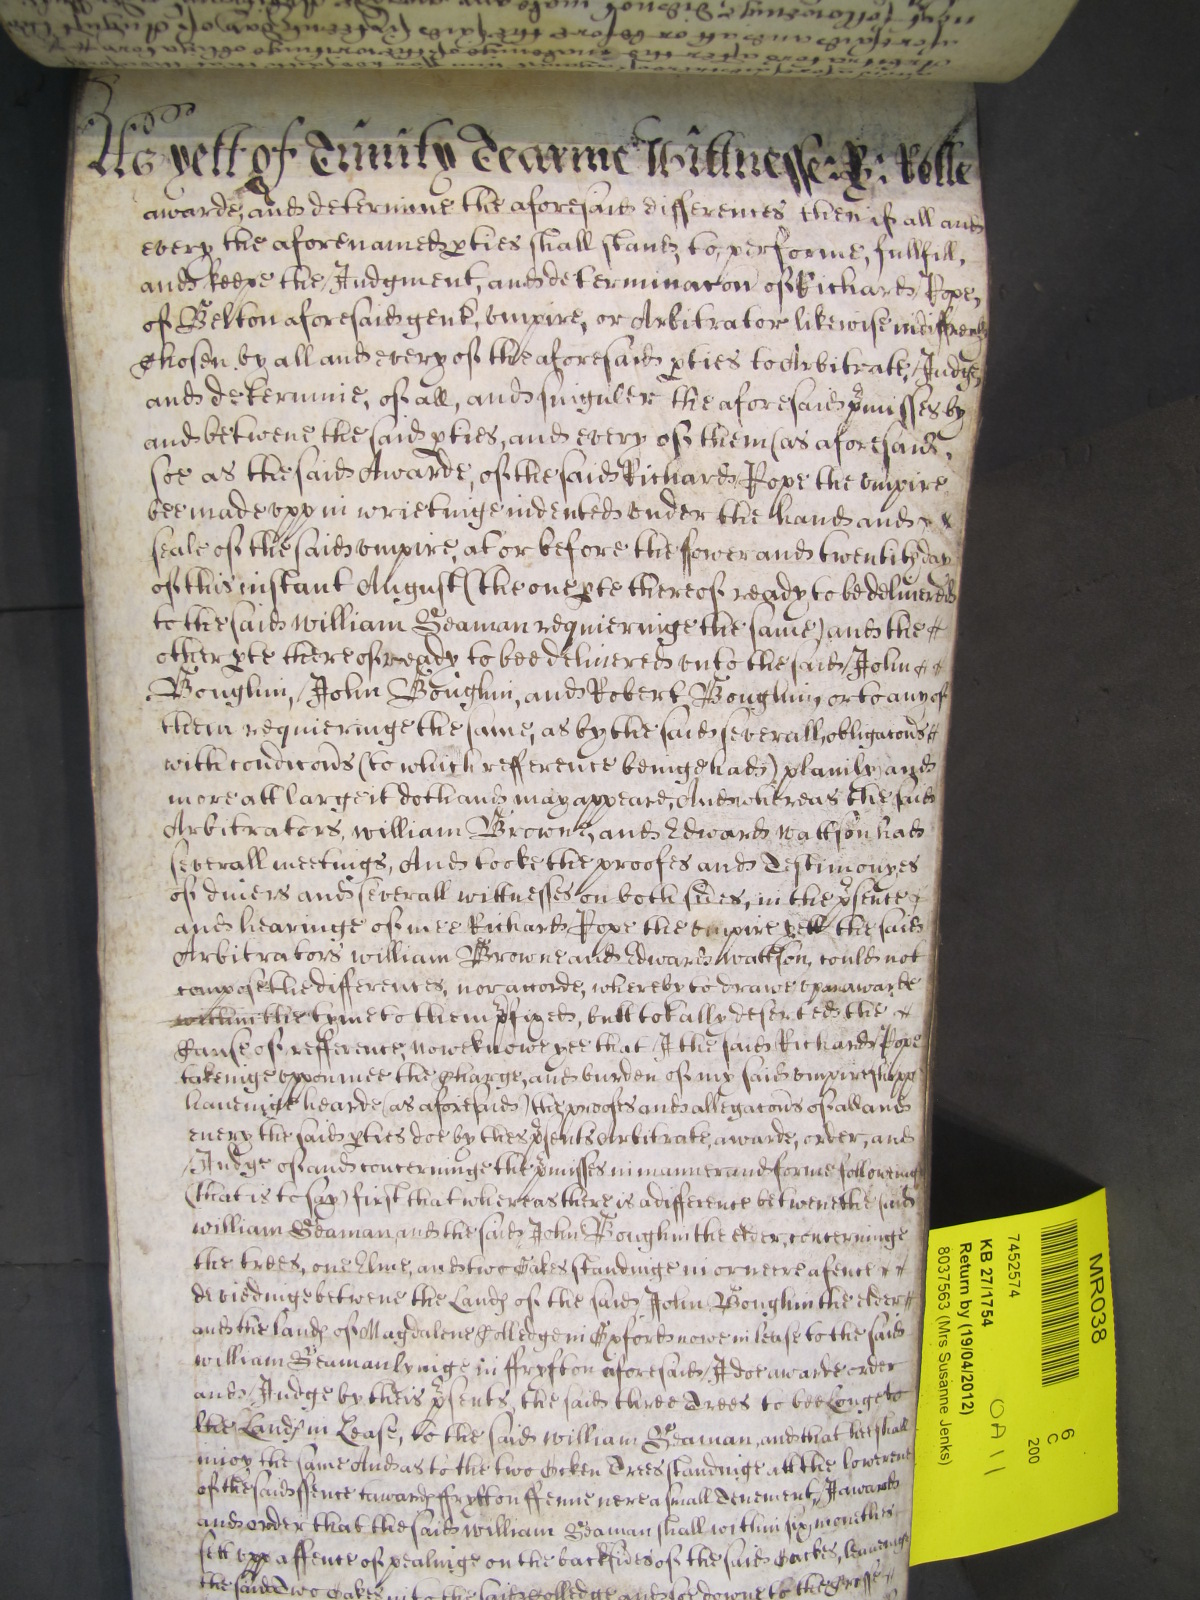 As yett of Trinity Tearme Wittnesse: R: Rolle
awarde, and determine the aforesaid differences then if all and
every the aforenamed pties shall stand to, performe, fullfill,
and keepe the Judgment, and determinacon of Richard Pope,
of Belton aforesaid gent, umpire, or Arbitrator likewise indifferently
Chosen by all and every of the aforesaid pties to Arbitrate, Judge,
and determine, of all, and singuler the aforesaid pmisses by
and betwene the said pties, and every of them (as aforesaid,
soe as the said Awarde, of the said Richard Pope the umpire
bee made upp in wrietinge indented under the hand and
seale of the said umpire, at or before the fower and twentith day
of this instant August (the one pte thereof ready to be delivered
to the said William Seaman requieringe the same) and the
other pte thereof ready to bee delivered unto the said John
Boughin, John Boughin, and Robert Boughin, or to any of
them requieringe the same, as by the said severall, obligacons
with condicons (to which refference beinge had) plainly and
more att large it doth and may appeare, And whereas the said
Arbitrators, William Browne, and Edward Wattson had
severall meetings, And tooke the proofes and Testimonyes
of divers and severall wittnesses on both sides, in the psence
and hearinge of mee Richard Pope the umpire yett the said
Arbitrators William Browne and Edward Wattson, could not
compose the differences, nor accorde, whereby to drawe upp an awarde
within the tyme to them pfixed, butt totally deserted the
Cause of refference, nowe knowe yee that I the said Richard Pope
takeinge uppon mee the Charge, and burden of my said umpireshipp
haveinge hearde (as aforesaid) the proofes and allegacons of all and
every the said pties doe by thes psents Arbitrate, awarde, order, and
Judge of and concerninge the pmisses in manner and forme followinge
(that is to say) first that whereas there is a difference betwene the said
William Seaman and the said John Boughin the elder, concerninge
the trees, one Elme, and two Oakes standinge in or neere a fence
devidinge betwene the Land of the said John Boughin the elder
and the land of Magdalene Colledge in Oxford nowe in lease to the said
William Seaman lyinge in ffrytton aforesaid, I doe awarde order
and Judge by theis psents, the said three Trees to bee Longe to
the Land in Lease, to the said William Seaman, and that hee shall
injoy the same And as to the two Oeken Trees standinge att the lower end
of the said ffence toward ffrytton ffenne nere a small Tenement, I awarde
and order that the said William Seaman shall within six monethes
sett upp a ffence of pealinge on the backsides of the said Oackes, leaveinge
the said Two Oakes into the said Colledge and soe downe to the
MR038
7452574
KB 27/1754
Return by (19/04/2012)
8037563 (Mrs Susanne Jenks)
6
C
200
OA 11